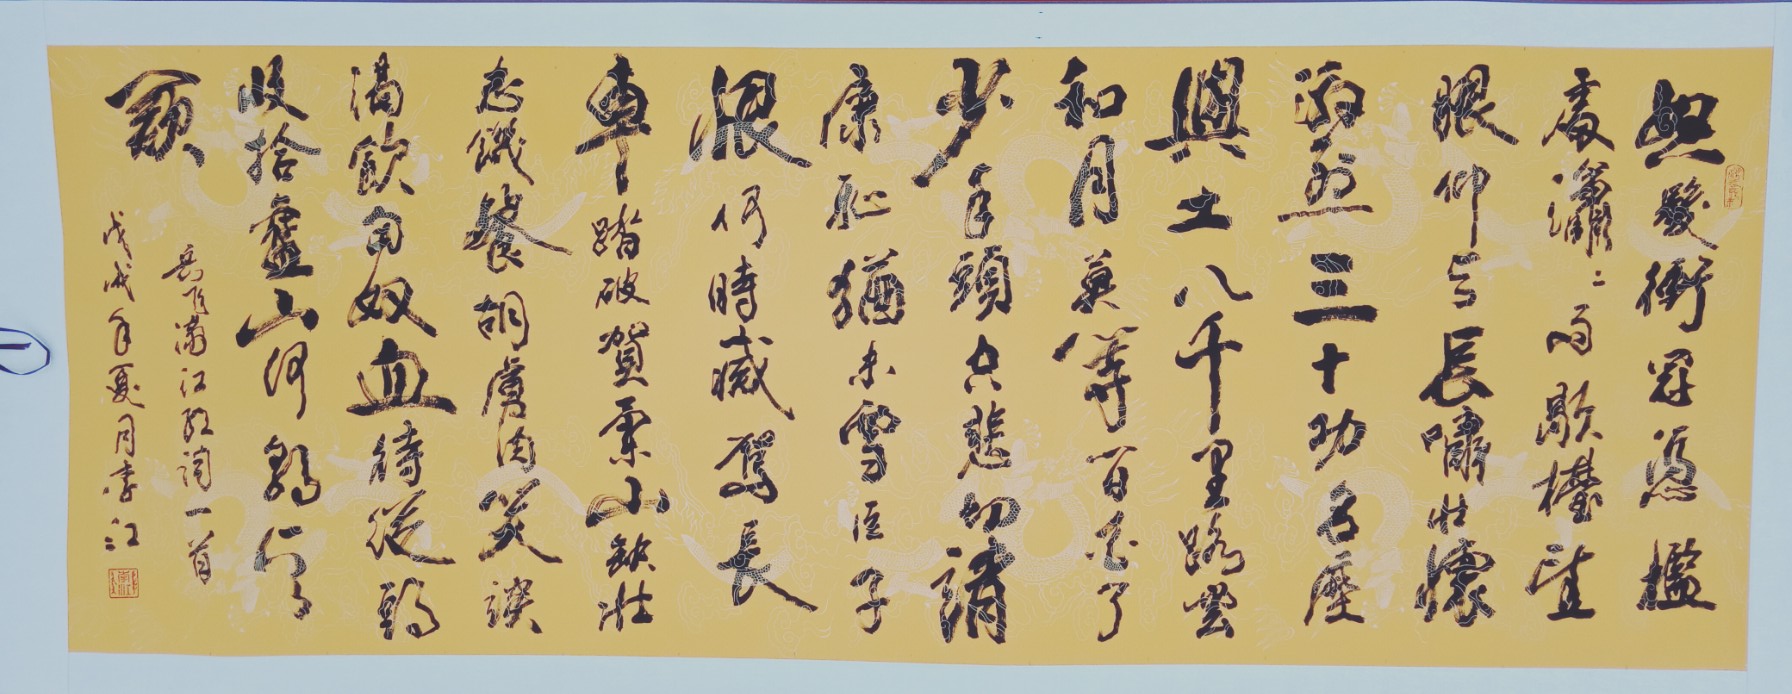 怒髮衝冠憑檻
處瀟〻雨歇檯望
眼仰天長嘯壯懷
激烈三十功名塵
與土八千里路雲
和月莫等了
少年頭空悲切靖
康恥猶未雪臣子
恨何時滅駕長
車踏破賀蘭山缺壯
志饑餐胡虜肉笑談
渴飲匈奴血待從頭
收拾舊山河朝天
闕
岳飛滿江紅詞一首
戊戌年夏月李江